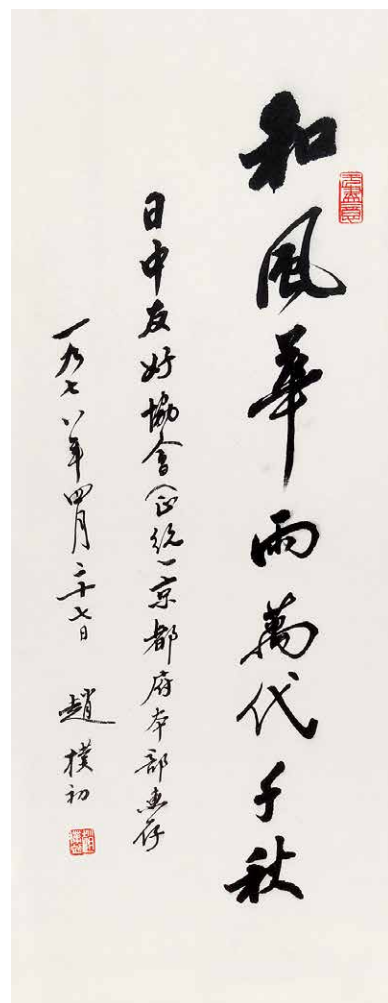 和風華雨萬代千秋
日中友好協會（正統）京都府本部惠存
一九七八年四月二十七日 趙樸初